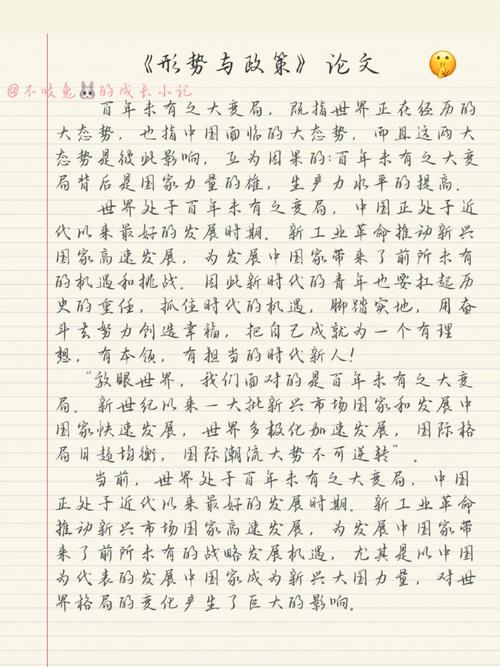 《形势与政策》论文
@不吱兔的成长小记
百年未有之大变局，既指世界正在经历的
大态势，也指中国面临的大态势，而且这两大
态势是彼此影响，互为因果的：百年未有之大变
局背后是国家力量的雄，生产力水平的提高．
世界处于百年未有之变局，中国正处于近
代以来最好的发展时期．新工业革命推动新兴
国家高速发展，为发展中国家带来了前所未有
的机遇和挑战．因此新时代的青年也要扛起历
史的重任，抓住时代的机遇，脚踏实地，用奋
斗去努力创造幸福，把自己成就为一个有理
想，有本领，有担当的时代新人！
“放眼世界，我们面对的是百年未有之大变
局．新世纪以来一大批新兴市场国家和发展中
国家快速发展，世界多极化加速发展，国际格
局日趋均衡，国际潮流大势不可逆转”．
当前，世界处于百年未有之大变局，中国
正处于近代以来最好的发展时期．新工业革命
推动新兴市场国家高速发展，为发展中国家带
来了前所未有的战略发展机遇，尤其是以中国
为代表的发展中国家成为新兴大国力量，对世
界格局的变化产生了巨大的影响．